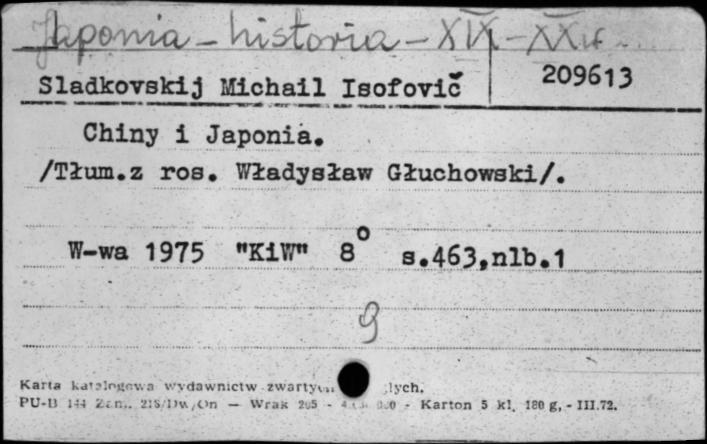 Japonia – historia – XIX – XX w.
Sladkovskij Michail Isofovič 209613
Chiny i Japonia.
/Tłum.z ros. Władysław Głuchowski/.
W-wa 1975 "KiW" 8° s.463,nlb.1
9
Karta katalogowa wydawnictw zwartych
PU-B 144 Zam. 218/Dw/On — Wrak 205 - Karton 5 kl. 180 g, - III.72.